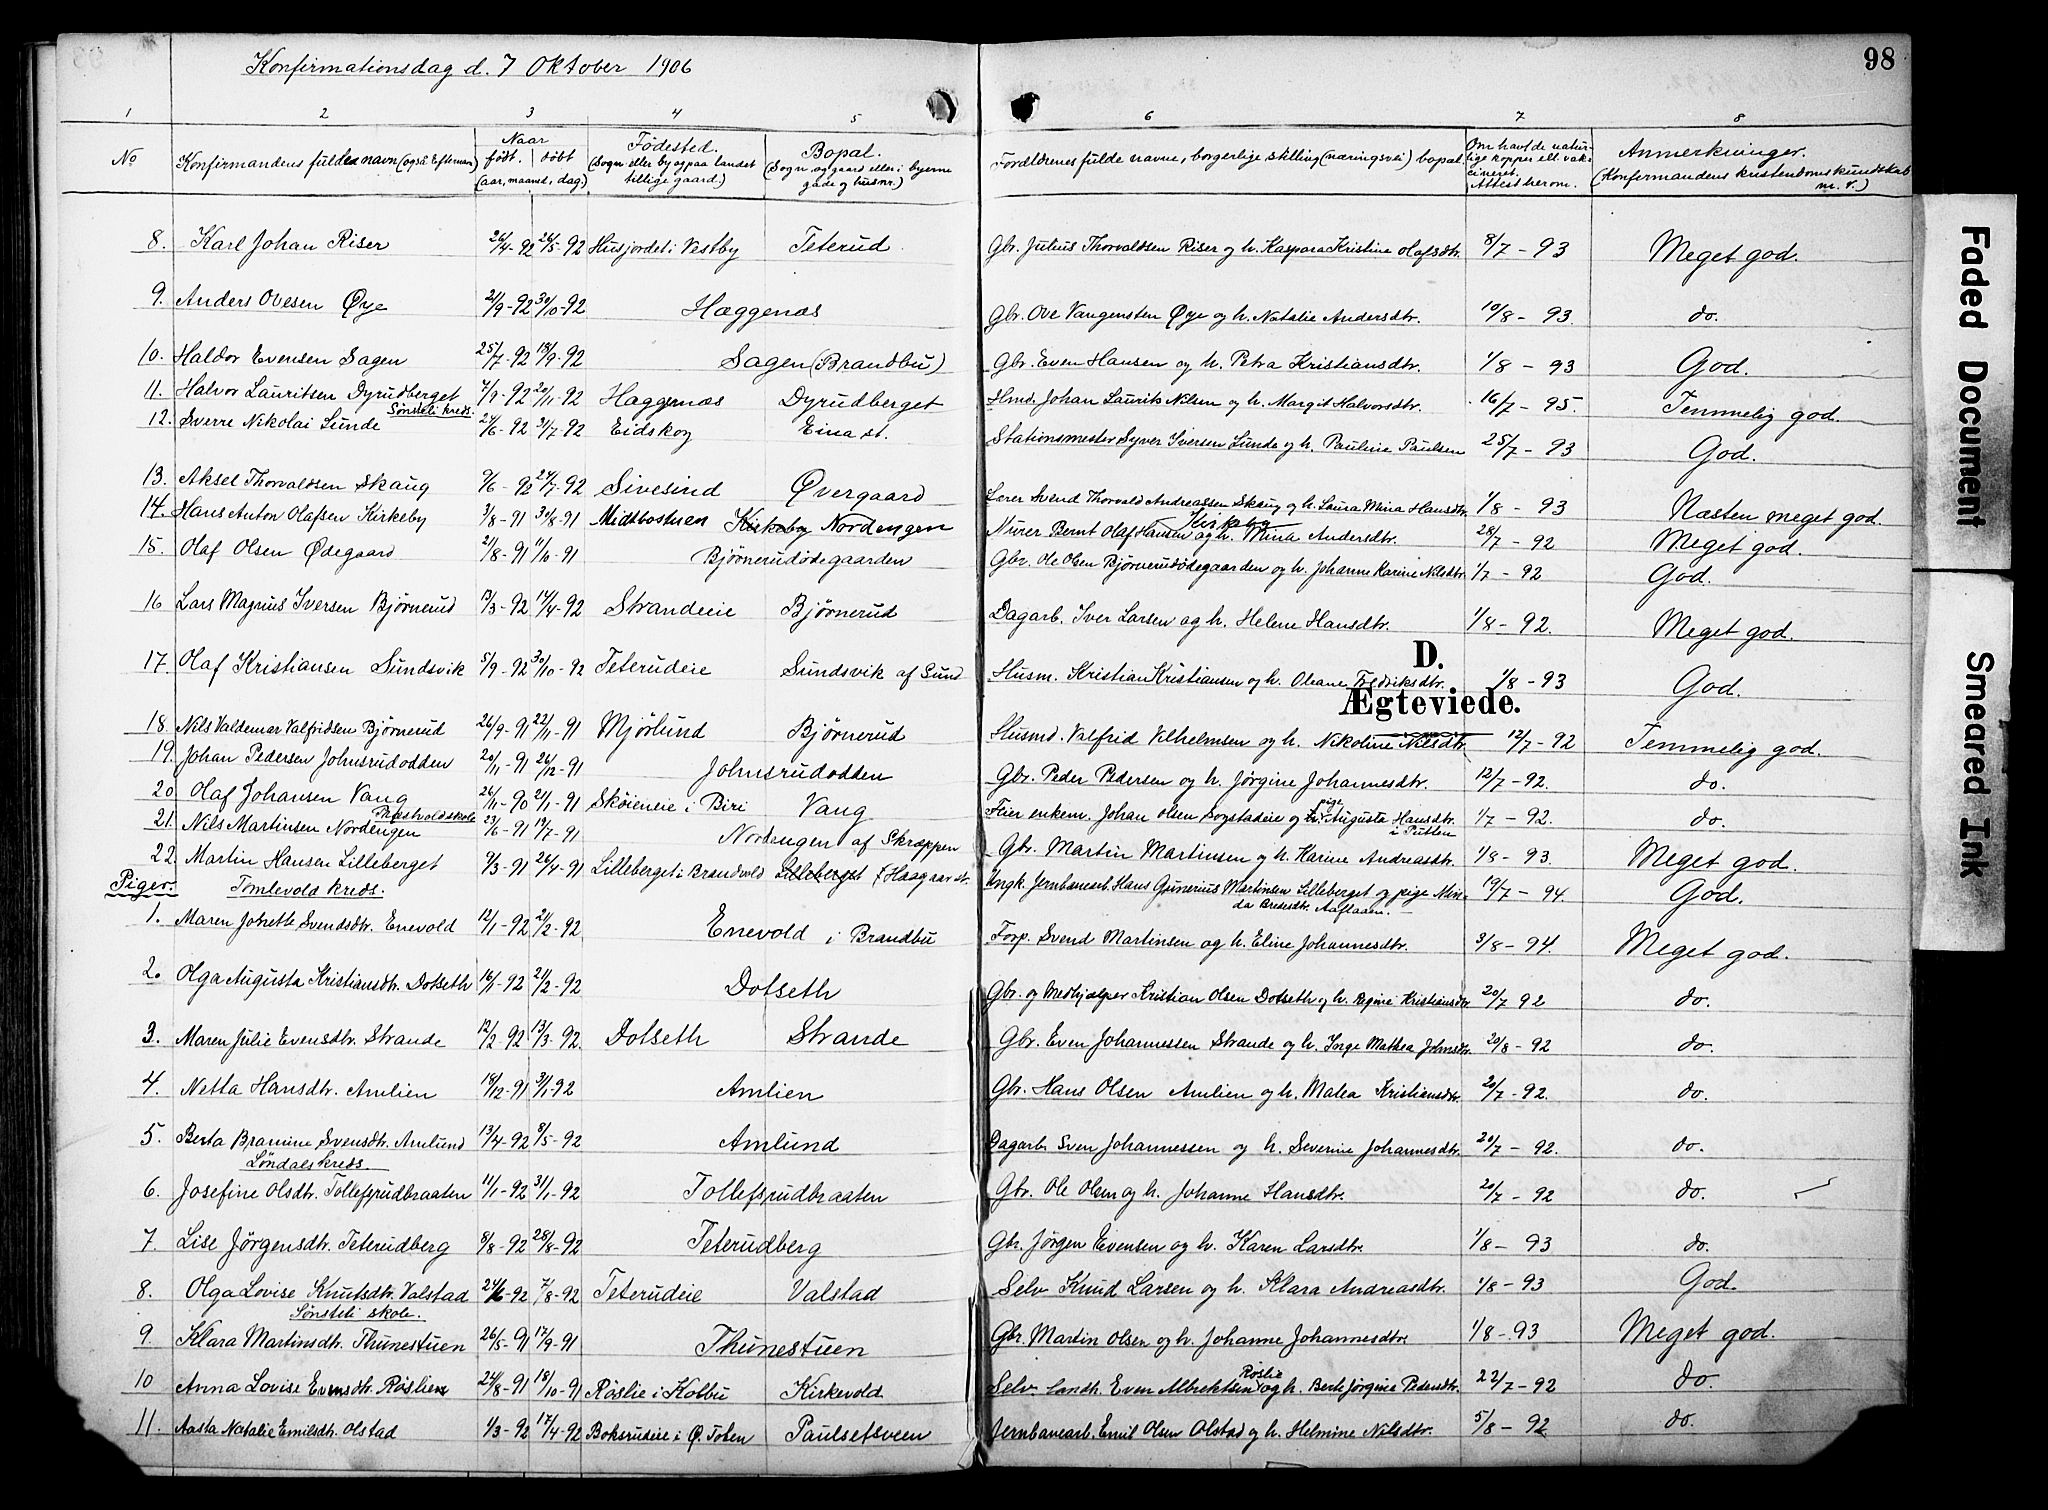 98
Konfirmationsdag d. 7 Oktober 1906
1 2 3 4 5 6 7 8
No Konfirmandens fulde navn (også Efternavn) Naar født. døbt (aar, maaned, dag.) Fødested. (Sogn eller by og paa landet tillige gaard.) Bopæl. (Sogn og gaard eller i byerne gade og husnr.) Forældrenes fulde navne, borgerlige stilling (næringsvei) bopæl. Om havt de naturlige kopper ell vakcineret. Attest herom. Anmerkninger. (Konfirmandens kristendomskundskab m. v.)
8. Karl Johan Riser 26/4-92 26/5-92 Husjordet i Vestby Teterud. Gbr. Julius Thorvaldsen Riser og h. Kaspara Kristine Olafsdtr. 8/7 - 93 Meget god.
9. Anders Ovesen Øye 21/9-92 30/10-92 Hæggenæs Gbr. Ove Vangensten Øye og h. Natalie Andersdtr. 10/8 - 93. do.
10. Haldor Evensen Sagen 25/7-92 18/9-92 Sagen (Brandbu) Gbr. Even Hansen og h. Petra Kristiansdtr. 1/8 - 93 God.
11. Halvor Lauritsen Dyrudberget 7/9-92 20/11-92 Hæggenæs Dyrudberget Hmd. Johan Laurits Nilsen og h. Margit Halvorsdtr. 16/7 - 95. Temmelig god.
Sønsteli kreds.
12. Sverre Nikolai Sunde 24/6-92 31/7-92 Eidskog Eina st. Stationsmester Syver Iversen Sunde og h. Pauline Paulsen 25/7 - 93 God.
13. Aksel Thorvaldsen Skaug 9/6-92 24/7-92 Sivesind Øvergaard Lærer Svend Thorvald Andreassen Skaug og h. Laura Mina Hansdtr. 1/8 - 93 Næsten meget god.
14. Hans Anton Olafsen Kirkeby 3/8-91 30/8-91 Midtbostuen Kirkeby Nordengen Murer Bernt Olaf Hansen Kirkeby og h. Mina Andersdtr. 28/7 - 92 Meget god.
15. Olaf Olsen Ødegaard 21/8-91 11/10-91 Bjørnerudødegaarden Gbr. Ole Olsen Bjørnerudødegaarden og h. Johanne Karine Nilsdtr. 1/7 - 92 God.
16 Lars Magnus Iversen Bjørnerud 13/3-92 14/4-92 Strandeie Bjørnerud Dagarb. Iver Larsen og h. Helene Hansdtr. 1/8 - 92. Meget god.
D.
17. Olaf Kristiansen Sundsvik 5/9-92 30/10-92 Teterudeie Sundsvik af Sund Husm. Kristian Kristiansen og h. Oleane Fredriksdtr. 1/8 - 93 God.
Ægteviede.
18. Nils Valdemar Valfridsen Bjørnerud 26/9-91 22/11-91 Mjørlund Bjørnerud Husmd. Valfrid Vilhelmsen og h. Nikoline Nilsdtr. 12/7 - 92 Temmelig god.
19. Johan Pedersen Johnsrudodden 20/11-91 26/12-91 Johnsrudodden Gbr. Peder Pedersen og h. Jørgine Johannesdtr. 12/7 - 92. do.
20 Olaf Johansen Vang 24/11-90 21/1-91 Skøieneie i Biri Vang Feier enkem. Johan Olsen Sogstadeie og pige Augusta Hansdtr. i Putten 1/7 - 92. do.
21. Nils Martinsen Nordengen 23/6-91 19/7-91 Nordengen af Skræppen Gbr. Martin Martinsen og h. Karine Andreasdtr. 1/8 - 93. Meget god.
22. Martin Hansen Lilleberget 9/3-91 26/4-91 Lilleberget i Brandvold Lilleberget Haagaar st. Ungk. Jernbanearb. Hans Gunerius Martinsen Lilleberget og pige Minda Bredesdtr. Aaflaaen. 19/7 - 94. God.
Piger. Tomlevold kreds.
1. Maren Jonette Svendsdtr. Enevold 12/1-92 21/2-92 Enevold i Brandbu Forp. Svend Martinsen og h. Eline Johannesdtr. 3/8 - 94. Meget god.
2. Olga Augusta Kristiansdtr. Dotseth 16/1-92 21/2-92 Dotseth Gbr. og Medhjælper Kristian Olsen Dotseth og h. Regine Kristiansdtr. 20/7 92 do.
3. Maren Julie Evensdtr. Strande 12/2-92 13/3-92. Dotseth Strande Gbr. Even Johannessen Strande og h. Inge Mathea Johnsdtr. 20/8 - 92 do.
4. Netta Hansdtr. Amlien 18/12-91 31/1-92 Amlien Gbr. Hans Olsen Amlien og h. Malea Kristiansdtr. 20/7 - 92. do.
5. Berta Bramine Svensdtr. Amlund 13/4-92 8/5-92 Amlund Dagarb. Sven Johannessen og h. Severine Johannesdtr. 20/7 - 92. do.
Løndals kreds.
6. Josefine Olsdtr. Tollefsrudbraaten 11/1-92 31/1-92 Tollefsrudbraaten Gbr. Ole Olsen og h. Johanne Hansdtr. 20/7 - 92 do.
7. Lise Jørgensdtr. Teterudberg 8/8-92 28/8-92 Teterudberg Gbr. Jørgen Evensen og h. Karen Larsdtr. 1/8 - 93 do.
8. Olga Lovise Knutsdtr. Valstad 24/6-92 7/8-92 Teterudeie Valstad Selv. Knud Larsen og h. Klara Andreasdtr. 1/8 - 93 God.
Sønsteli skole.
9. Klara Martinsdtr. Thunestuen 26/5-91 17/9-91 Thunestuen Gbr. Martin Olsen og h. Johanne Johannesdtr. 1/8 - 93 Meget god.
10 Anna Lovise Evensdtr. Røslien 24/8-91 18/10-91 Røslie i Kolbu Kirkevold Selv. Landh. Even Albrektsen Røslie og h. Berte Jørgine Pedersdtr. 22/7 - 92 do.
11. Aasta Natalie Emilsdtr. Olstad 1/3-92 17/4-92 Boksrudeie i Ø. Toten Paulsetsveen Jernbanearb. Emil Olsen Olstad og h. Helmine Nilsdtr. 5/8 - 92 do.
Faded Document
Smeared Ink